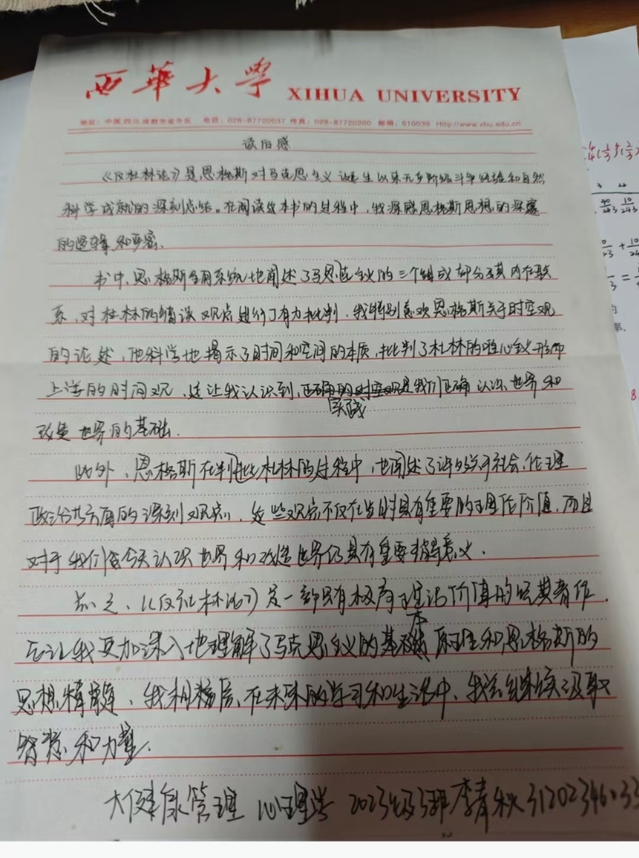 西華大學 XIHUA UNIVERSITY
地址：中国.四川.成都市金牛区 电话：028-87720037 传真：028-87720200 邮编：610039 Http://www.xhu.edu.cn
读后感
《反杜林论》是恩格斯对马克思主义诞生以来无产阶级斗争经验和自然
科学成就的深刻总结。在阅读这本书的过程中，我深感恩格斯思想的深邃
的逻辑和
书中，恩格斯系统地阐述了马克思主义的三个组成部分及其内在联
系，对杜林的错误观点进行了有力批判，我特别喜欢恩格斯关于时空观
的论述，他科学地揭示了时间和空间的本质，批判了杜林的唯心主义形而
上学的时间观，这让我认识到，正确的时空观是我们正确认识世界和
实践
改造世界的基础.
此外，恩格斯在批判杜林的过程中，也阐述了许多关于社会、伦理
政治等方面的深刻观点，这些观点不仅在当时具有重要的理论价值，而且
对于我们今天认识世界和改造世界仍具有重要指导意义.
总之，《反杜林论》是一部具有极高理论价值的经典著作.
它让我更加深入地理解了马克思主义的基本原理和恩格斯的
思想精髓，我相信，在未来的学习和生活中，我会继续汲取
智慧和力量.
大健康管理 心理学 2023级 李青秋